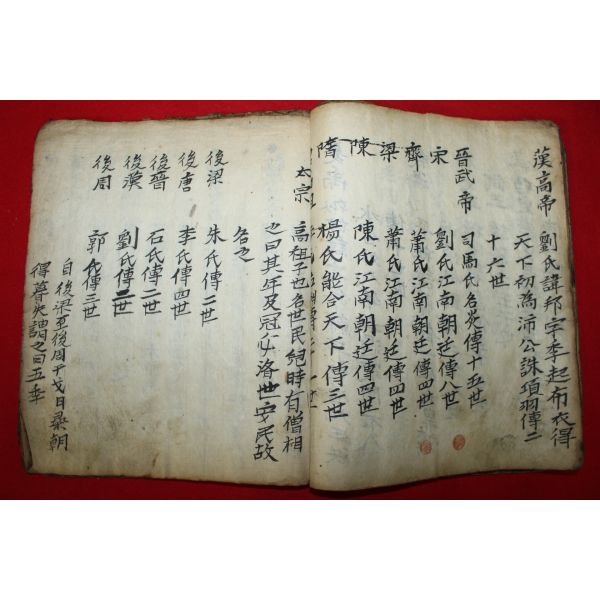 漢高帝 劉氏諱邦字季起布衣得
天下初為沛公誅項羽傳二
十六世
晉武帝 司馬氏名炎傳十五世
宋 劉氏江南朝廷傳八世
齊 蕭氏江南朝廷傳四世
梁 蕭氏江南朝廷傳四世
陳 陳氏江南朝廷傳四世
隋 楊氏能合天下傳三世
太宗 高祖子也名世民綂時有僧相
之曰其年及冠必洛世安民故
名之
後梁 朱氏傳二世
後唐 李氏傳四世
後晉 石氏傳二世
後漢 劉氏傳二世
後周 郭氏傳三世
自後梁至後周干戈日桑朝
得暮失謂之曰五季